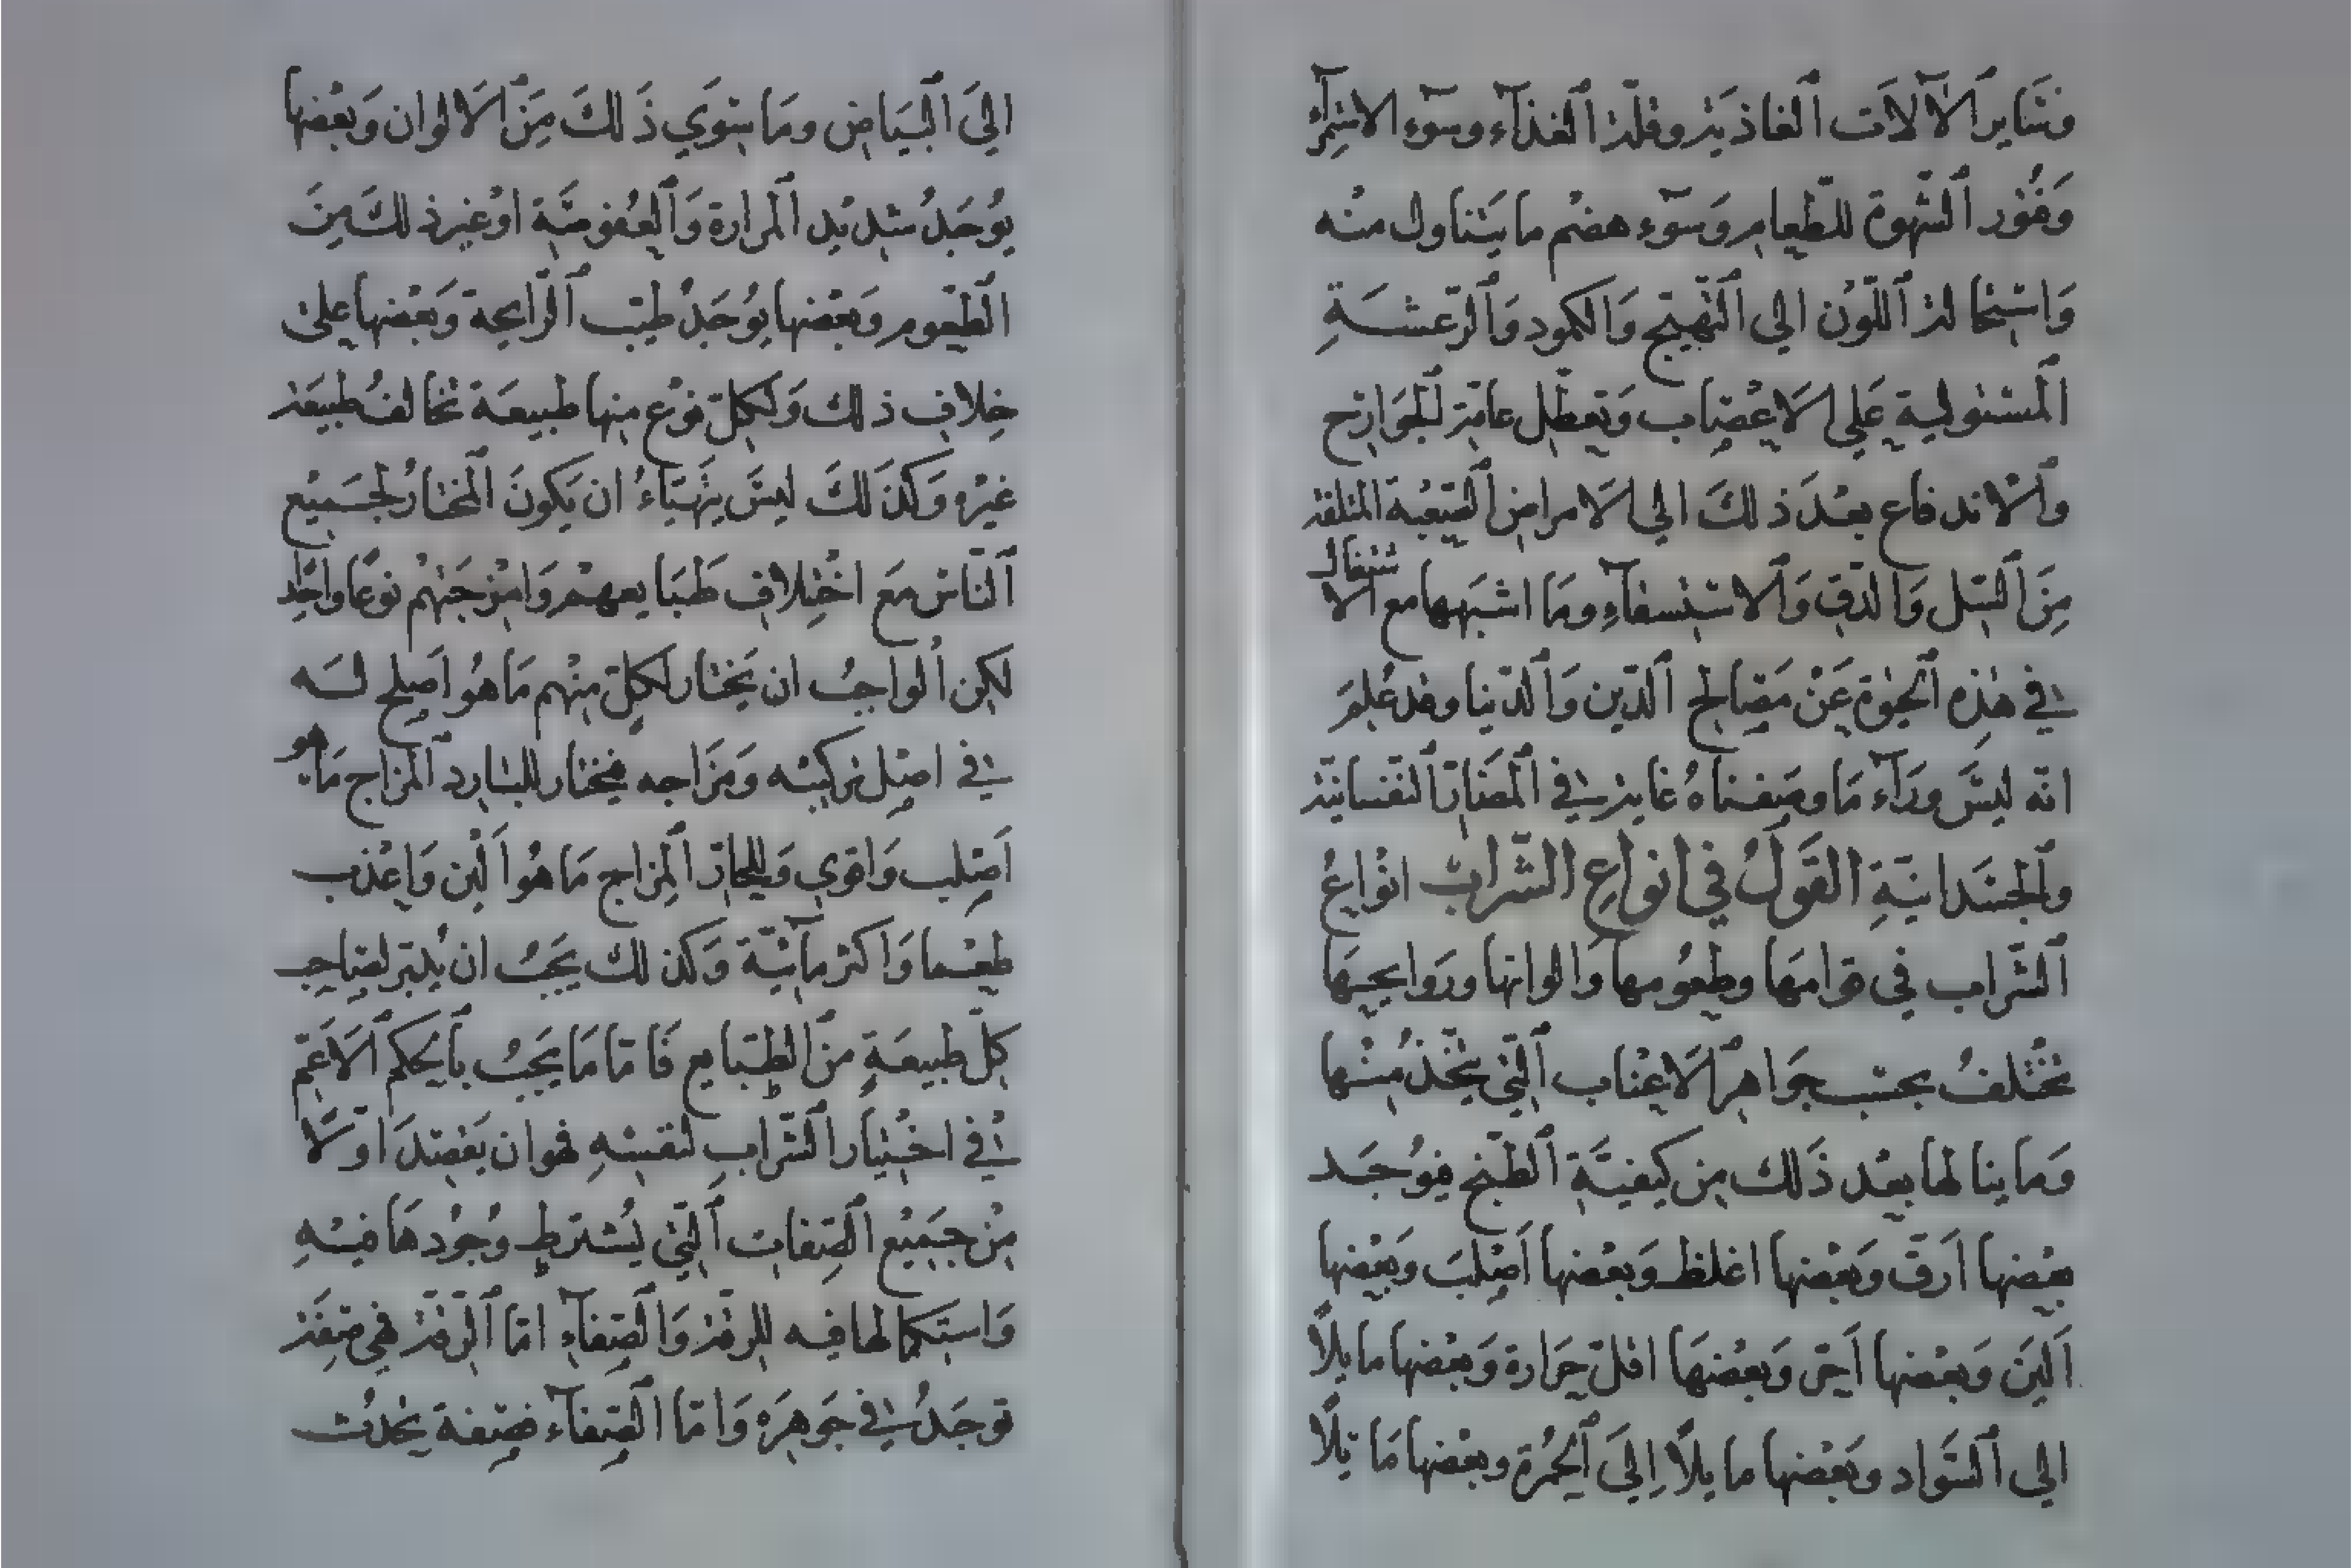 وسَاير الآلات الغاذية وقلة الغذآء وسوء الاستمرآء
وَفتور الشهوة للطعام وَسوء هضم ما يتناول منه
وَاستحالة اللون الى التهيج وَالكمود وَالرعشة
المستولية على الاعصاب وَتعطل عامة الجوارح
والاندفاع بعد ذلك الي الامراض الصعبة المتلفة
مِنَ السل وَالدق وَالاستسقآءِ وما اشبهها مع الاشتغال
في هٰذه الحيوة عَنْ مَصالح الدّين وَالدّنيا وقد عُلِمَ
انّه ليسَ ورآء مَا وصفناهُ غاية في المضار النفسانية
والجسدانيةِ القولُ في انواعِ الشراب انواعُ
الشراب في قوامهَا وطعومها وَالوانها وروايحهَا
تختلفُ بحسب جَواهر الاعناب التي يتّخذ منها
وَما ينالها بعد ذَلك من كيفية الطبخ فيوجد
بعضها ارق وَبعضها اغلظ وَبعضها اصلب وَبعضها
الين وَبعضها احر وَبعضهَا اقل حرارة وَبعضها مايلاً
الى السواد وَبعضها مايلاً اِلَى الحمرة وبعضها مَايلاً
الىَ البَياض ومَا سوَي ذَلكَ مِنَ الالوان وَبعْضها
يوُجَدُ شديد المرارة وَالعفوصَة اوْ غير ذلكَ مِنَ
الطعوم وَبعضها يوُجَدُ طيب الرايحة وَبعضها على
خِلاف ذلك وَلكلّ نوع منها طبيعة تخالف طبيعَة
غيره وَكذَلكَ ليسَ يتهيّاءُ ان يَكونَ المختارُ لجميع
النّاس معَ اختِلاف طبَايعهم وَامزجَتهم نوعًا واحدا
لكن الواجبُ ان يَختار لكلّ منهم مَا هُو اَصلح له
في اصل تركيبه وَمزَاجه فيختار للبارد المزاج مَا هو
اَصلب وَاقوي وَللحارّ المزاج مَا هُو اَلين وَاعْذب
طعما وَاكثر مآئيّة وَكذلك يجبُ ان يُدبّر لصاحب
كلّ طبيعَةٍ منَ الطبايع فَامّا مَا يَجبُ بالحكم الاعَمّ
في اختيار الشراب لنفسهِ فهو ان يقصدَ اوّلا
مِنْ جَميع الصفات التي يُشترط وُجُودهَا فيهِ
وَاستكمالها فيه للرقة وَالصفآءِ امّا الرقة فهى صفَة
توجَدُ في جَوهَره وَامّا الصفآء فصفة يحدث